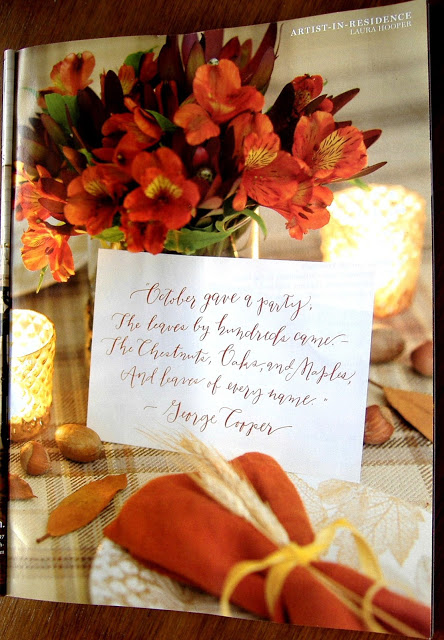 ARTIST-IN-RESIDENCE
LAURA HOOPER
"October gave a party,
The leaves by hundreds came –
The Chestnuts, Oaks, and Maples,
And leaves of every name."
– George Cooper